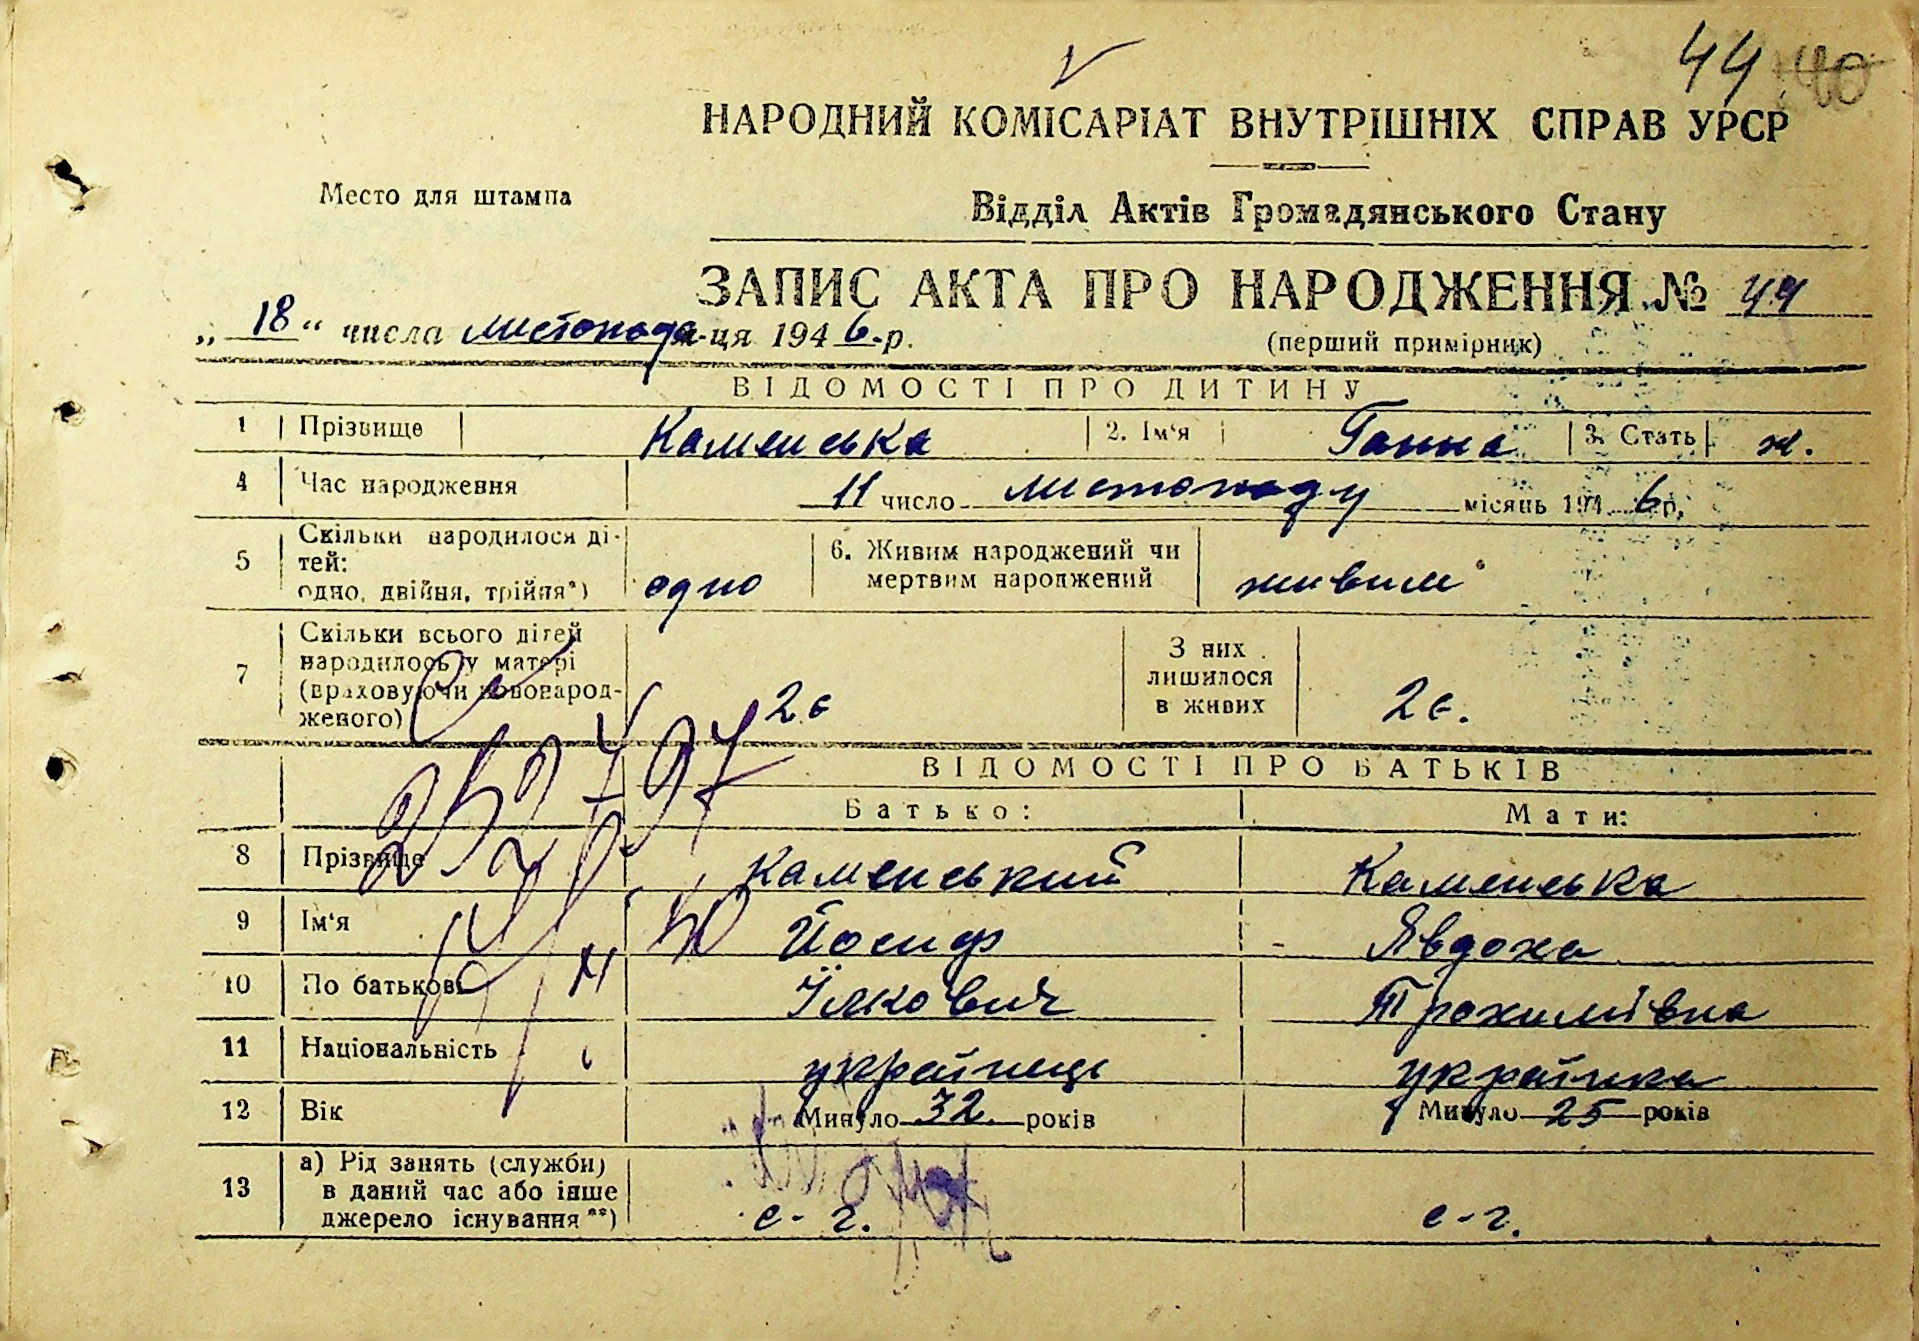 44 40
НАРОДНИЙ КОМІСАРІАТ ВНУТРІШНІХ СПРАВ УРСР
Место для штампа
Відділ Актів Громадянського Стану
ЗАПИС АКТА ПРО НАРОДЖЕННЯ № 44
„ 18 “ числа листопада-ця 1946-р.
(перший примірник)
ВІДОМОСТІ ПРО ДИТИНУ
1 Прізвище Каменська 2. Ім'я Ганна 3. Стать ж.
4 Час народження 11 число листопаду місяць 1946р.
5 Скільки народилося ді-
тей:
одно, двійня, трійня*) одно
6. Живим народжений чи
мертвим народжений живим
7 Скільки всього дітей
народилось у матері
(враховуючи новонарод-
женого) 2є
З них
лишилося
в живих 2є.
ВІДОМОСТІ ПРО БАТЬКІВ
Батько: Мати:
8 Прізвище Каменський Каменська
9 Ім'я Йосип Явдоха
10 По батькові Ількович Трохимівна
11 Національність українець українка
12 Вік Минуло 32 років Минуло 25 років
13 а) Рід занять (служби)
в даний час або інше
джерело існування**) с-г. с-г.